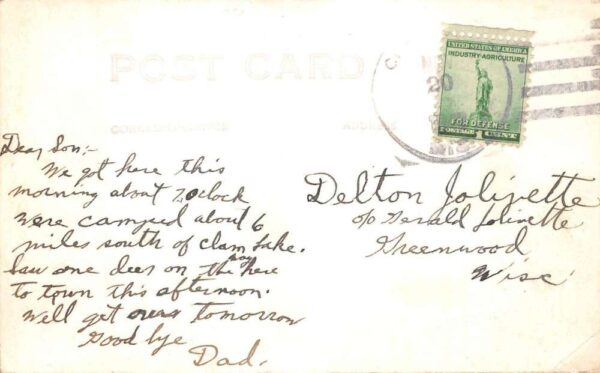 POST CARD
CORRESPONDENCE
ADDRESS
UNITED STATES OF AMERICA
INDUSTRY-AGRICULTURE
FOR DEFENSE
POSTAGE 1 CENT
20
WIS
Dear Son:-
We got here this
morning about 7 oclock
were camped about 6
miles south of Clam Lake.
Saw one deer on the way here
to town this afternoon.
Well get ours tomorrow
Good bye
Dad.
Delton Jolivette
c/o Gerald Jolivette
Greenwood
Wisc